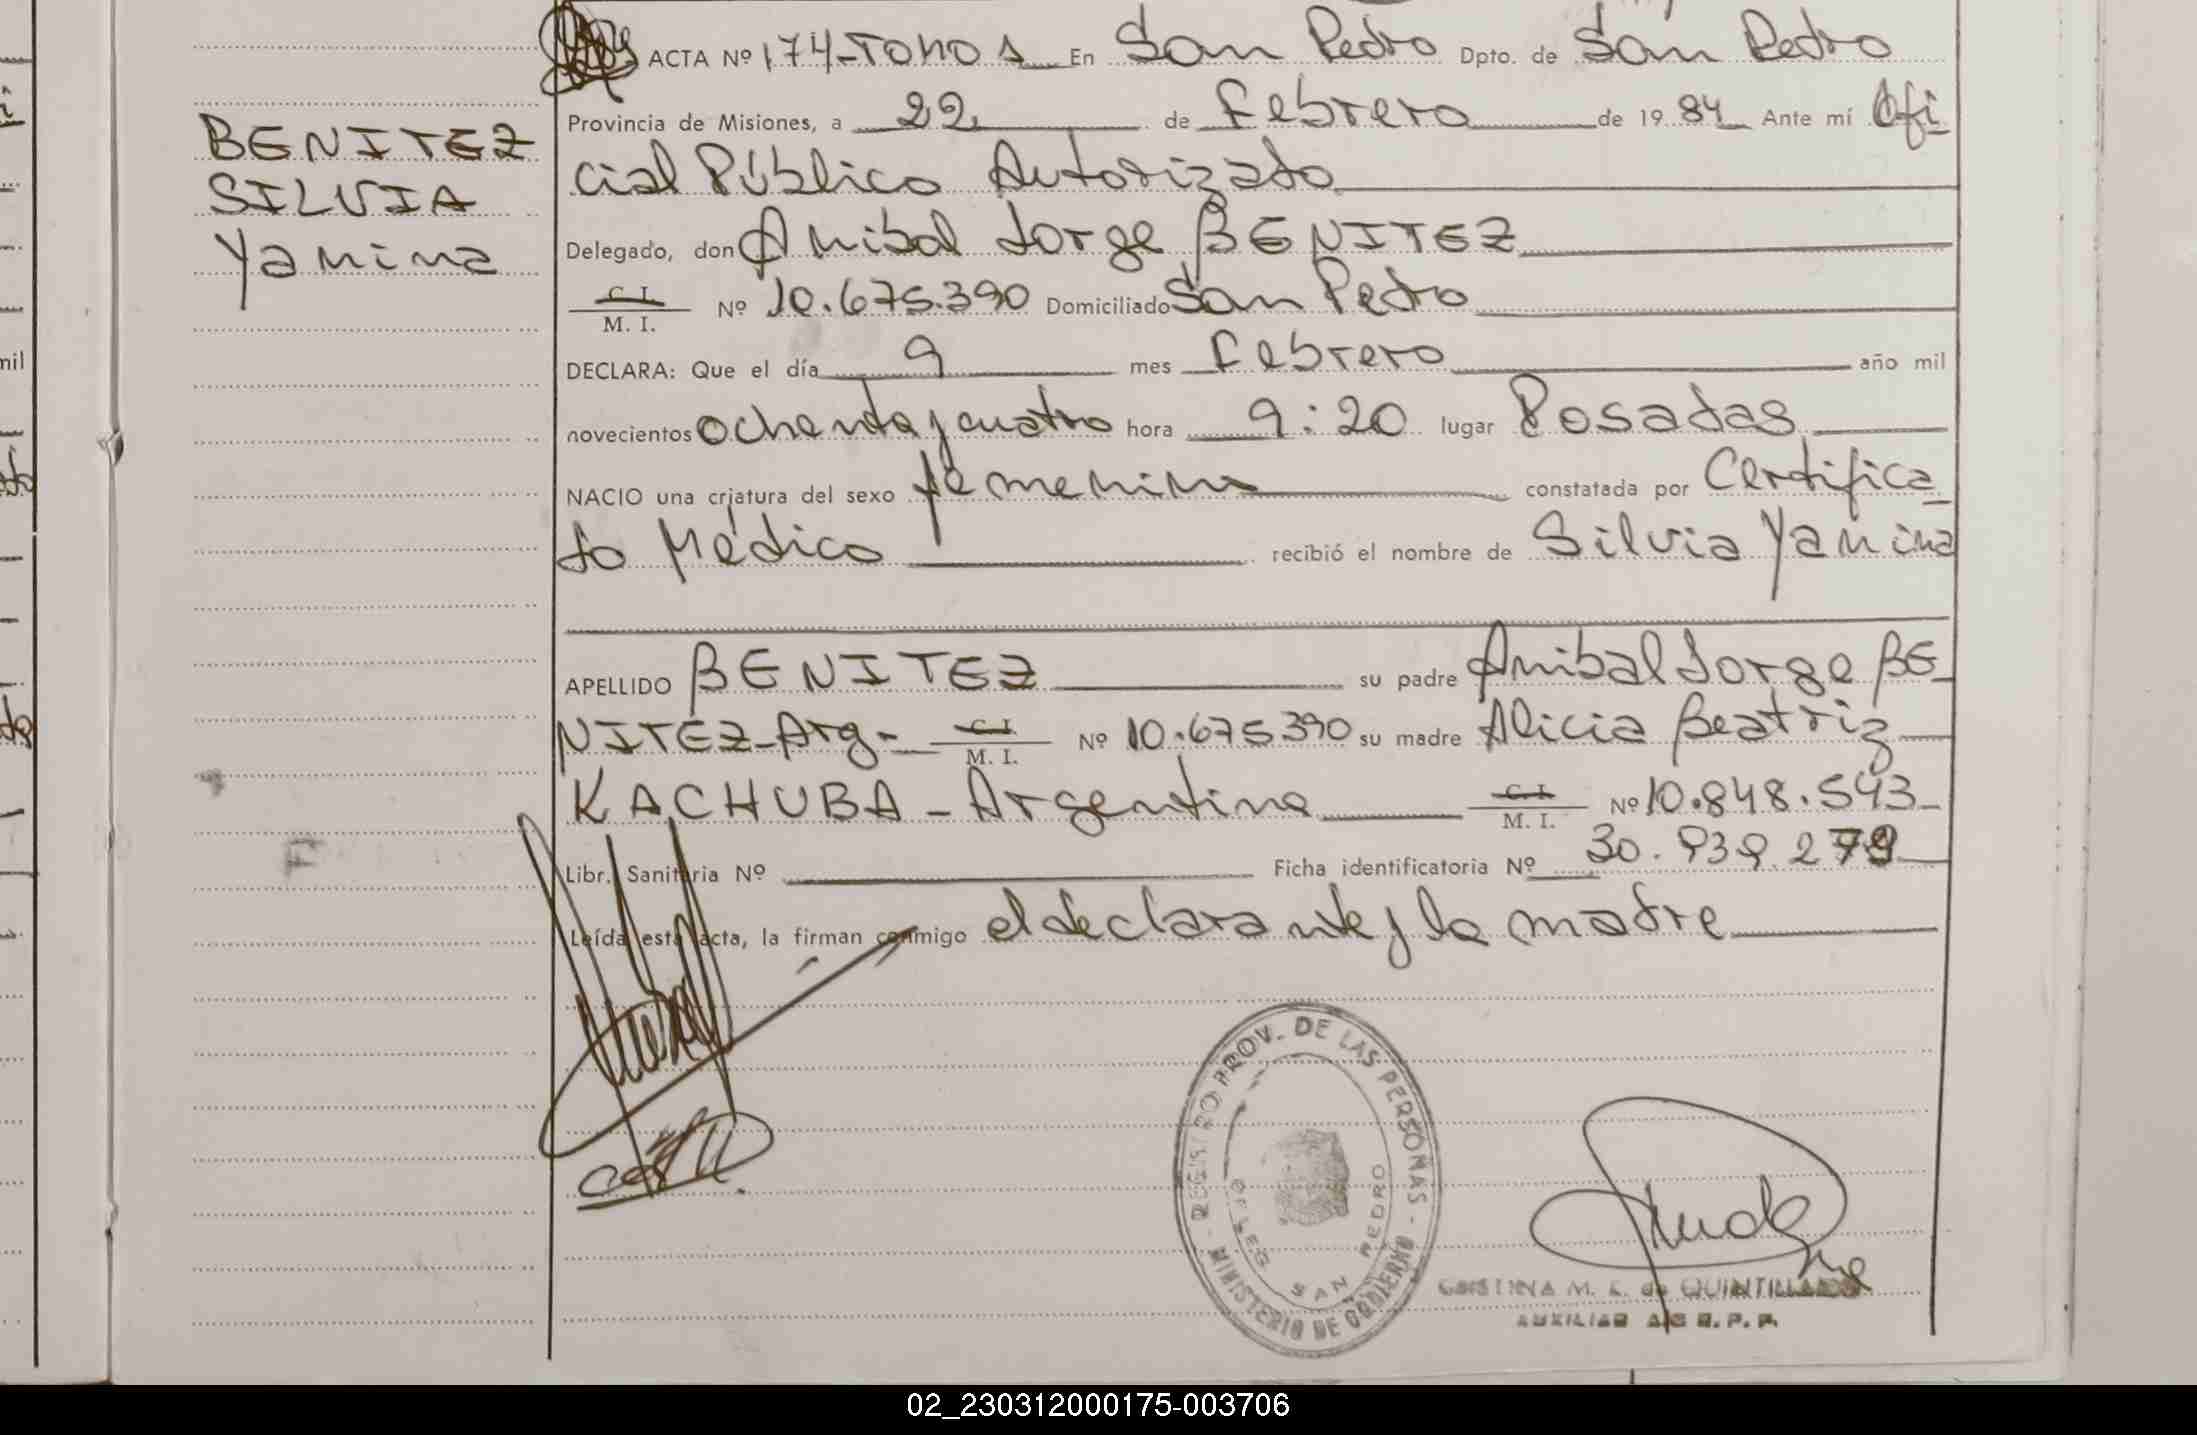 ACTA Nº 174-TOMO 1 En San Pedro Dpto. de San Pedro
Provincia de Misiones, a 22 de Febrero de 1984 Ante mí Ofi
BENITEZ
SILVIA
Yanina
cial Público Autorizado
Delegado, don Anibal Jorge BENITEZ
C. I.
M. I. Nº 10.675.390 Domiciliado San Pedro
DECLARA: Que el día 9 mes Febrero año mil
novecientos ochenta y cuatro hora 9:20 lugar Posadas
NACIO una criatura del sexo femenino constatada por Certifica_
do Médico recibió el nombre de Silvia Yanina
APELLIDO BENITEZ su padre Anibal Jorge BE_
NITEZ-Arg- C. I. M. I. Nº 10.675.390 su madre Alicia Beatriz
KACHUBA - Argentina C. I. M. I. Nº 10.848.543
Libr. Sanitaria Nº Ficha identificatoria Nº 30.939.279
Leída esta acta, la firman conmigo el declarante y la madre
REGISTRO PROV. DE LAS PERSONAS
MINISTERIO DE GOBIERNO
DELEG. SAN PEDRO
CRISTINA M. K. de QUINTILLAN
AUXILIAR
02_230312000175-003706